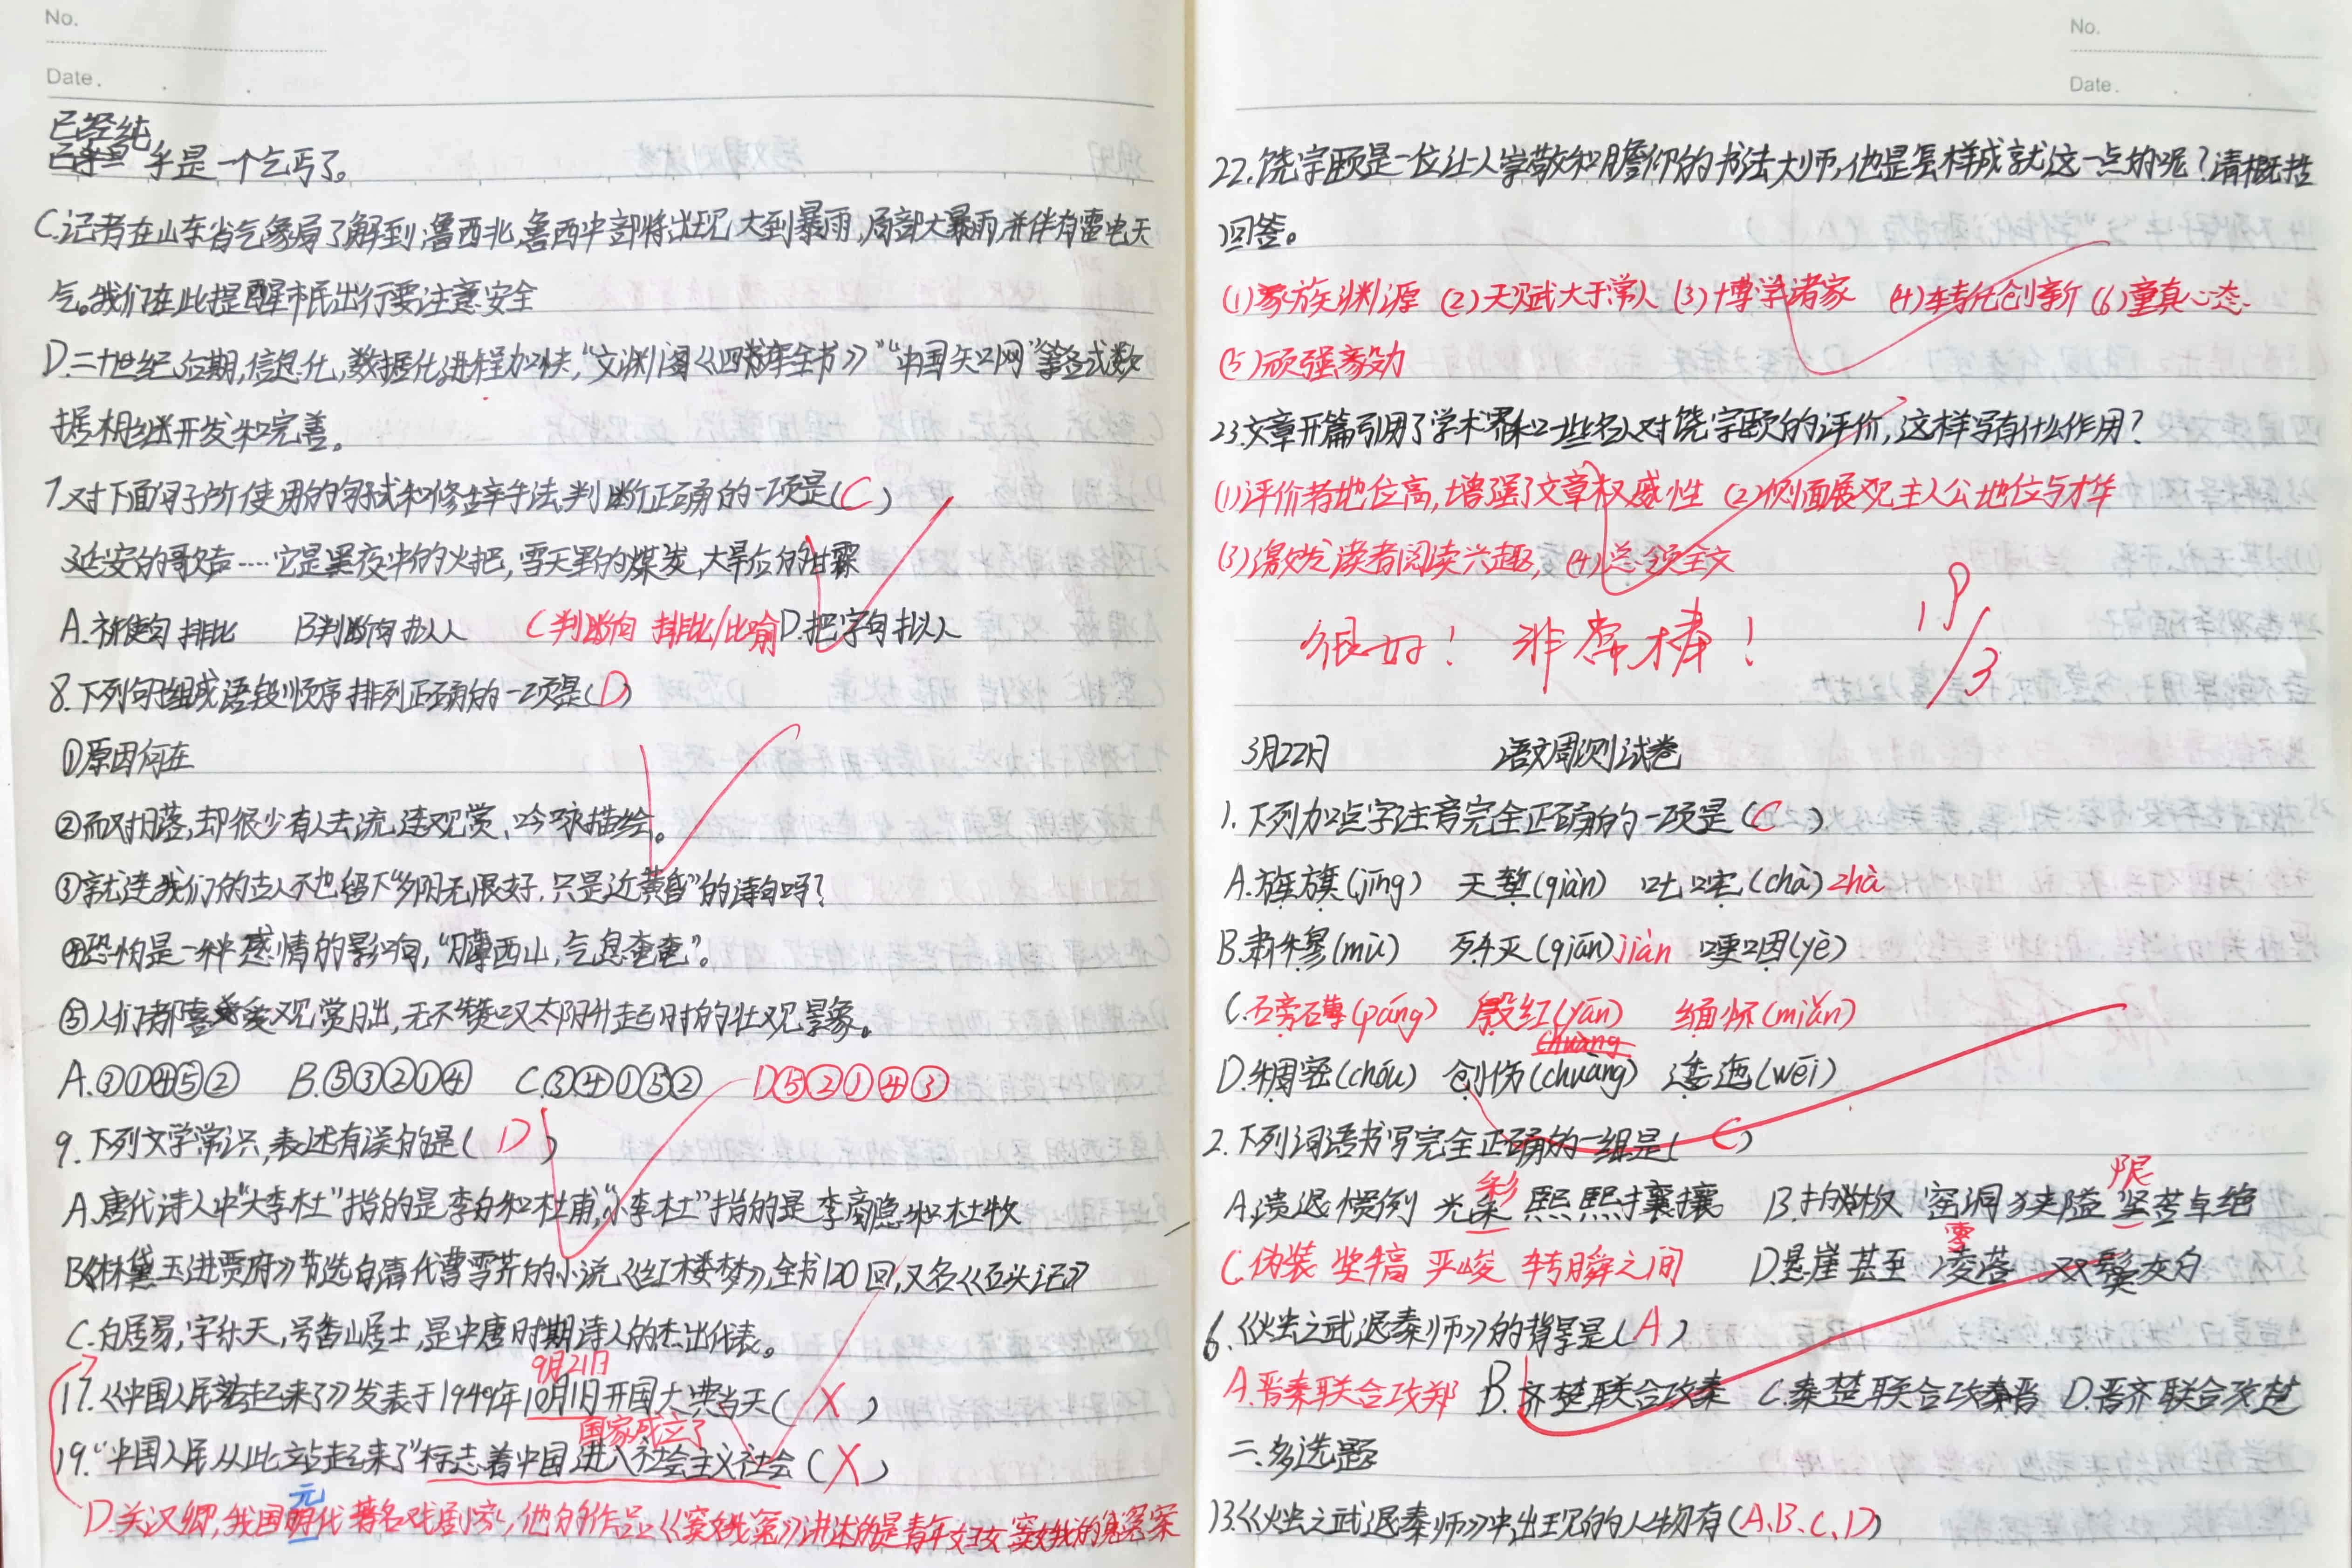 No.
Date.
已经纯
乎是一个乞丐了。
C.记者在山东省气象局了解到,鲁西北,鲁西中部将出现大到暴雨,局部大暴雨,并伴有雷电天
气。我们在此提醒市民出行要注意安全
D.二十世纪后期,信息化,数据化进程加快,“文渊阁《四库全书》”“中国知网”等各式数
据相继开发和完善。
7.对下面句子所使用的句式和修辞手法,判断正确的一项是(C)
延安的歌声……它是黑夜中的火把,雪天里的煤炭,大旱后的甘霖
A.祈使句 排比 B判断句 拟人 C判断句 排比/比喻 D.把字句 拟人
8.下列句组成语段顺序排列正确的一项是(D)
①原因何在
②而对日落,却很少有人去流连观赏、吟咏描绘。
③就连我们的古人不也留下“夕阳无限好,只是近黄昏”的诗句吗?
④恐怕是一种感情的影响,“日薄西山,气息奄奄”。
⑤人们都喜爱观赏日出,无不赞叹太阳升起时的壮观景象。
A.③①④⑤② B.⑤③②①④ C.③④①⑤② D⑤②①④③
9.下列文学常识,表述有误的是(D)
A.唐代诗人中“大李杜”指的是李白和杜甫,“小李杜”指的是李商隐和杜牧
B《林黛玉进贾府》节选自清代曹雪芹的小说《红楼梦》,全书120回,又名《石头记》
C.白居易,字乐天,号香山居士,是中唐时期诗人的杰出代表。
9月21日
17.《中国人民站起来了》发表于1949年10月1日开国大典当天(X)
国家成立了
19.“中国人民从此站起来了”标志着中国进入社会主义社会(X)
元
D.关汉卿,我国明代著名戏剧家,他的作品《窦娥冤》讲述的是青年妇女窦娥的冤案
No.
Date.
22.饶宗颐是一位让人崇敬和瞻仰的书法大师,他是怎样成就这一点的呢?请概括
回答。
(1)家族渊源 (2)天赋大于常人 (3)博学诸家 (4)转化创新 (6)童真心态
(5)顽强毅力
23.文章开篇引用了学术界和一些名人对饶宗颐的评价,这样写有什么作用?
(1)评价者地位高,增强了文章权威性 (2)侧面展现主人公地位与才华
(3)激发读者阅读兴趣, (4)总领全文
很好! 非常棒! 19/3
3月22日 语文周测试卷
1.下列加点字注音完全正确的一项是(C)
A.旌旗(jīng) 天堑(qiàn) 叱咤(chà) zhà
B.肃穆(mù) 歼灭(qiān) jiān 哽咽(yè)
C.磅礴(páng) 殷红(yān) 缅怀(miǎn)
chuàng
D.稠密(chóu) 创伤(chuàng) 逶迤(wēi)
2.下列词语书写完全正确的一组是(C)
彩 限
A.溃退 惯例 光采 熙熙攘攘 B.拍板 窑洞 狭隘 坚苦卓绝
零
C.伪装 奖犒 严峻 转瞬之间 D.悬崖 甚至 凌落 双鬓灰白
6.《烛之武退秦师》的背景是(A)
A.晋秦联合攻郑 B.齐楚联合攻秦 C.秦楚联合攻晋 D.晋齐联合攻楚
二.多选题
13.《烛之武退秦师》中出现的人物有(A.B.C.D)